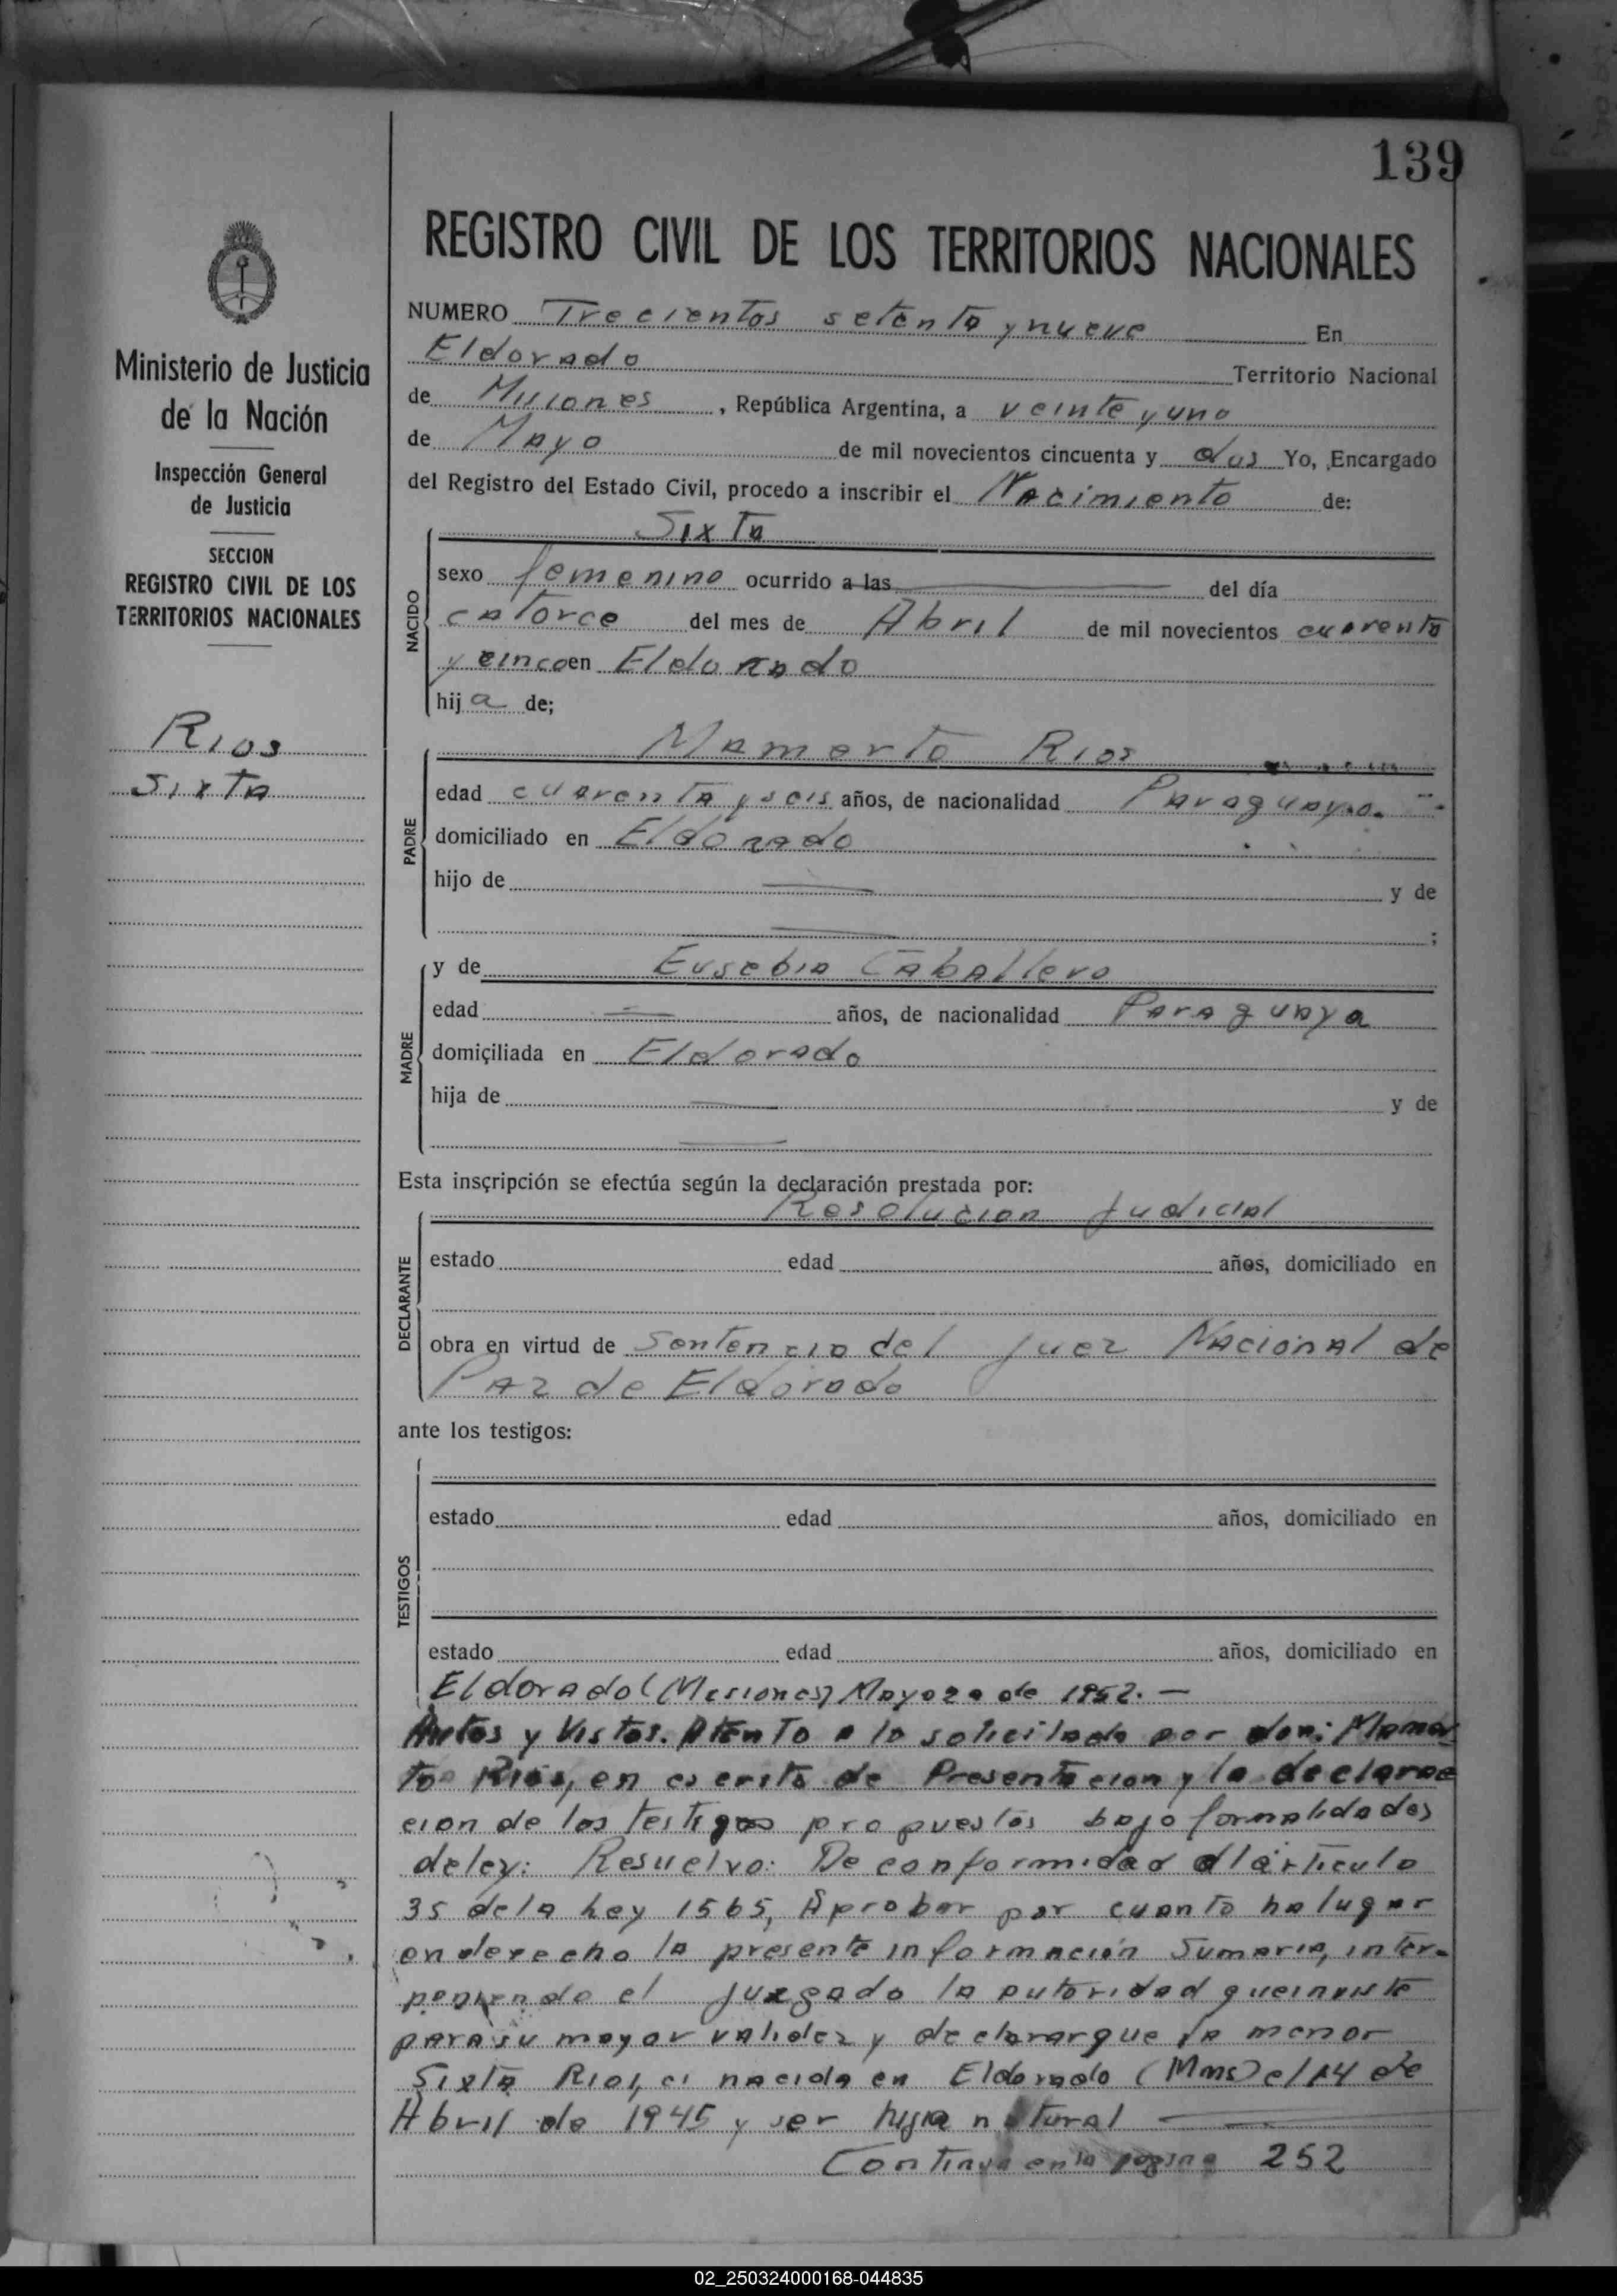 139
REGISTRO CIVIL DE LOS TERRITORIOS NACIONALES
Ministerio de Justicia
de la Nación
Inspección General
de Justicia
SECCION
REGISTRO CIVIL DE LOS
TERRITORIOS NACIONALES
Rios
Sixta
NUMERO Trecientos setenta y nueve En
Eldorado Territorio Nacional
de Misiones, República Argentina, a veinte y uno
de Mayo de mil novecientos cincuenta y dos Yo, Encargado
del Registro del Estado Civil, procedo a inscribir el Nacimiento de:
Sixta
NACIDO
sexo femenino ocurrido a las del día
catorce del mes de Abril de mil novecientos cuarenta
y cinco en Eldorado
hija de;
Mamerto Rios
PADRE
edad cuarenta y seis años, de nacionalidad Paraguayo.
domiciliado en Eldorado
hijo de y de
;
y de Eusebia Caballero
MADRE
edad años, de nacionalidad Paraguaya
domiciliada en Eldorado
hija de y de
Esta inscripción se efectúa según la declaración prestada por:
Resolucion Judicial
DECLARANTE
estado edad años, domiciliado en
obra en virtud de Sentencia del Juez Nacional de
Paz de Eldorado
ante los testigos:
TESTIGOS
estado edad años, domiciliado en
estado edad años, domiciliado en
Eldorado (Misiones) Mayo de 1952. —
Autos y Vistos. Atento a lo solicitado por don: Mamer
to Rios, en escrito de Presentacion y la declara
cion de los testigos propuestos bajo formalidades
de ley: Resuelvo: De conformidad al articulo
35 de la Ley 1565, Aprobar por cuanto ha lugar
en derecho la presente información Sumaria, inter-
poniendo el Juzgado la autoridad que inviste
para su mayor validez y declarar que la menor
Sixta Rios, es nacida en Eldorado (Mnes) el 14 de
Abril de 1945 y ser hija natural
Continua en la pagina 252
02_250324000168-044835